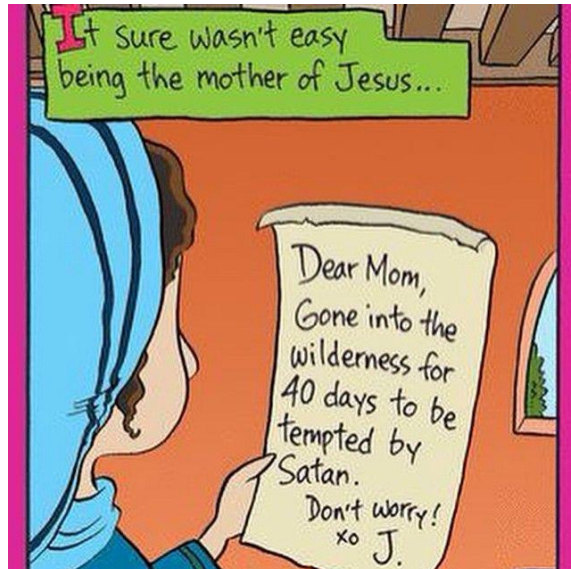 It sure wasn't easy
being the mother of Jesus...
Dear Mom,
Gone into the
wilderness for
40 days to be
tempted by
Satan.
Don't worry!
xo J.